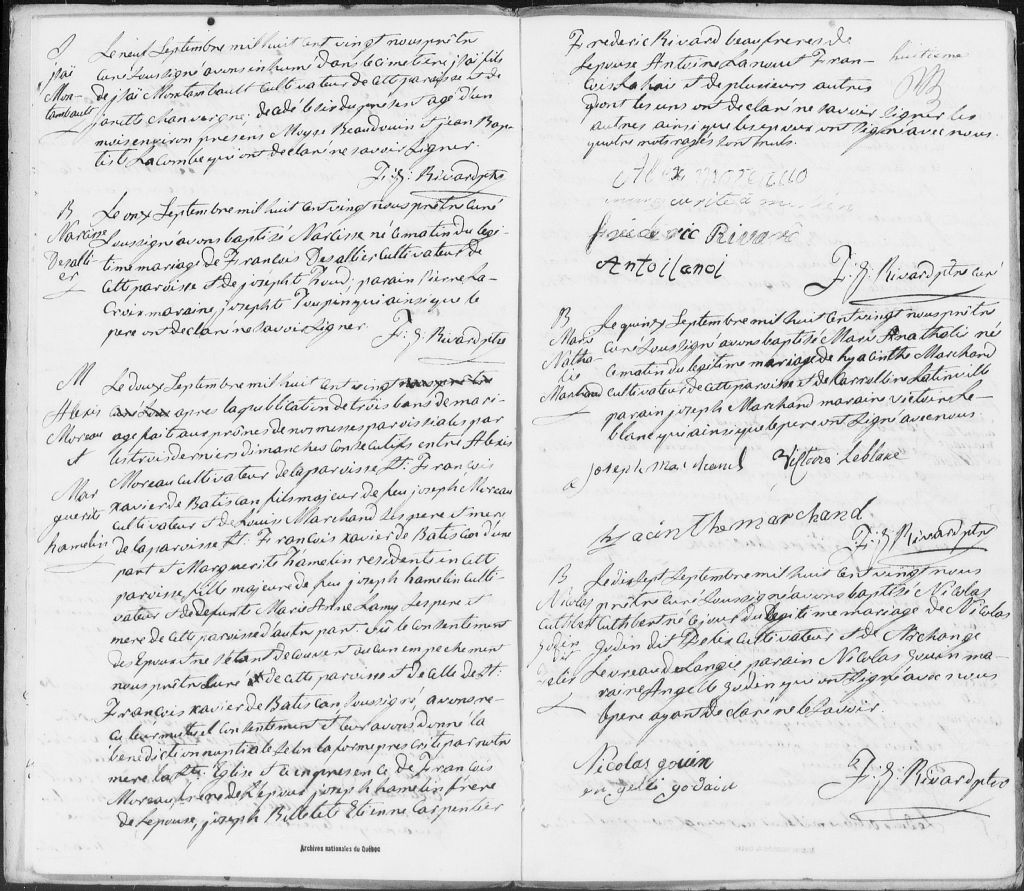 S
jsai
Mon-
tambault
Le neuf Septembre mil huit cent vingt nous prêtre
curé Soussigné avons inhumé dans le cimetière jsaï fils
de jsaï Montambault Cultivateur de cette paroisse et de
josette chanvergne; décédé le six du présent agé d'un
mois environ presens Moyse Beaudouin et jean Bap-
tiste Lacombe qui ont déclaré ne savoir Signer.
F: X: Rivard ptre
B
Narcisse
Desalli-
er
Le onze Septembre mil huit cent vingt nous prêtre curé
Soussigné avons baptisé Narcisse né ce matin du legi-
time mariage de François Desallier Cultivateur de
cette paroisse et de joséphte parain Pierre La-
Croix maraine josephte Toupin qui ainsi que le
pere ont declaré ne Savoir Signer
F: X: Rivard ptre
M
Alexis
Moreau
et
Mar
guerite
hamelin
Le douze Septembre mil huit cent vingt nous prêtre
curé Sous apres la publication de trois bans de mari-
age fait aux prônes de nos messes paroissiales par
les trois derniers dimanches Consecutifs entre Alexis
Moreau Cultivateur de la paroisse St: François
xavier de Batiscan fils majeur de feu joseph Moreau
Cultivateur et de Louise Marchand Ses pere et mere
de la paroisse St: François xavier de Batiscan d'une
part et Marguerite hamelin residente en cette
paroisse fille majeure de feu joseph hamelin Culti-
vateur et de defunte Marie Anne Lamy Ses pere et
mere de cette paroisse d'autre part. Sûr le Consentement
des Epoux et ne S'étant decouvert aucun empechement
nous prêtre Cure de cette paroisse et de Celle de St:
François xavier de Batiscan Soussigné, avons re-
cu leur mutuel Consentement et leur avons donné la
bénédiction nuptiale Selon la forme prescrite par notre
mere la Ste: Eglise et ce en presence de François
Moreau frere de l'Epoux joseph hamelin frére
de l'epouse, joseph Etienne Carpentier
Archives nationales du Québec
Frederic Rivard beaufreres de
l'epouse Antoine Lanouet Fran-
cois Lahaie et de plusieurs autres
dont les uns ont declaré ne savoir Signer les
autres ainsi que les epoux ont Signé avec nous.
quatre mots rayés sont nuls.
huitieme
Alexi moreauo
frederic Rivard
F: X: Rivard ptre curé
B
Marie
Natha-
lie
Marchand
Le quinze Septembre mil huit cent vingt nous prêtre
curé Soussigné avons baptisé Marie Anathali né
ce matin du legitime mariage de hyacinthe Marchand
cultivateur de cette paroisse et de Carroline
parain joseph Marchand maraine victoire Le-
blanc qui ainsi que le pere ont Signé avec nous.
joseph marchand Victoire leblanc
hyacinthe marchand
F: X: Rivard ptre
B
Nicolas
Cuthbert
Le dix Sept Septembre mil huit cent vingt nous
prêtre curé Soussigné avons baptisé Nicolas
Cuthbert né ce jour du Legitime mariage de Nicolas
dit Cultivateur et de Archange
parain Nicolas gouin ma-
raine Angelle godin qui ont Signé avec nous
le pere ayant declaré ne le Savoir.
Nicolas gouin
F: X: Rivard ptre